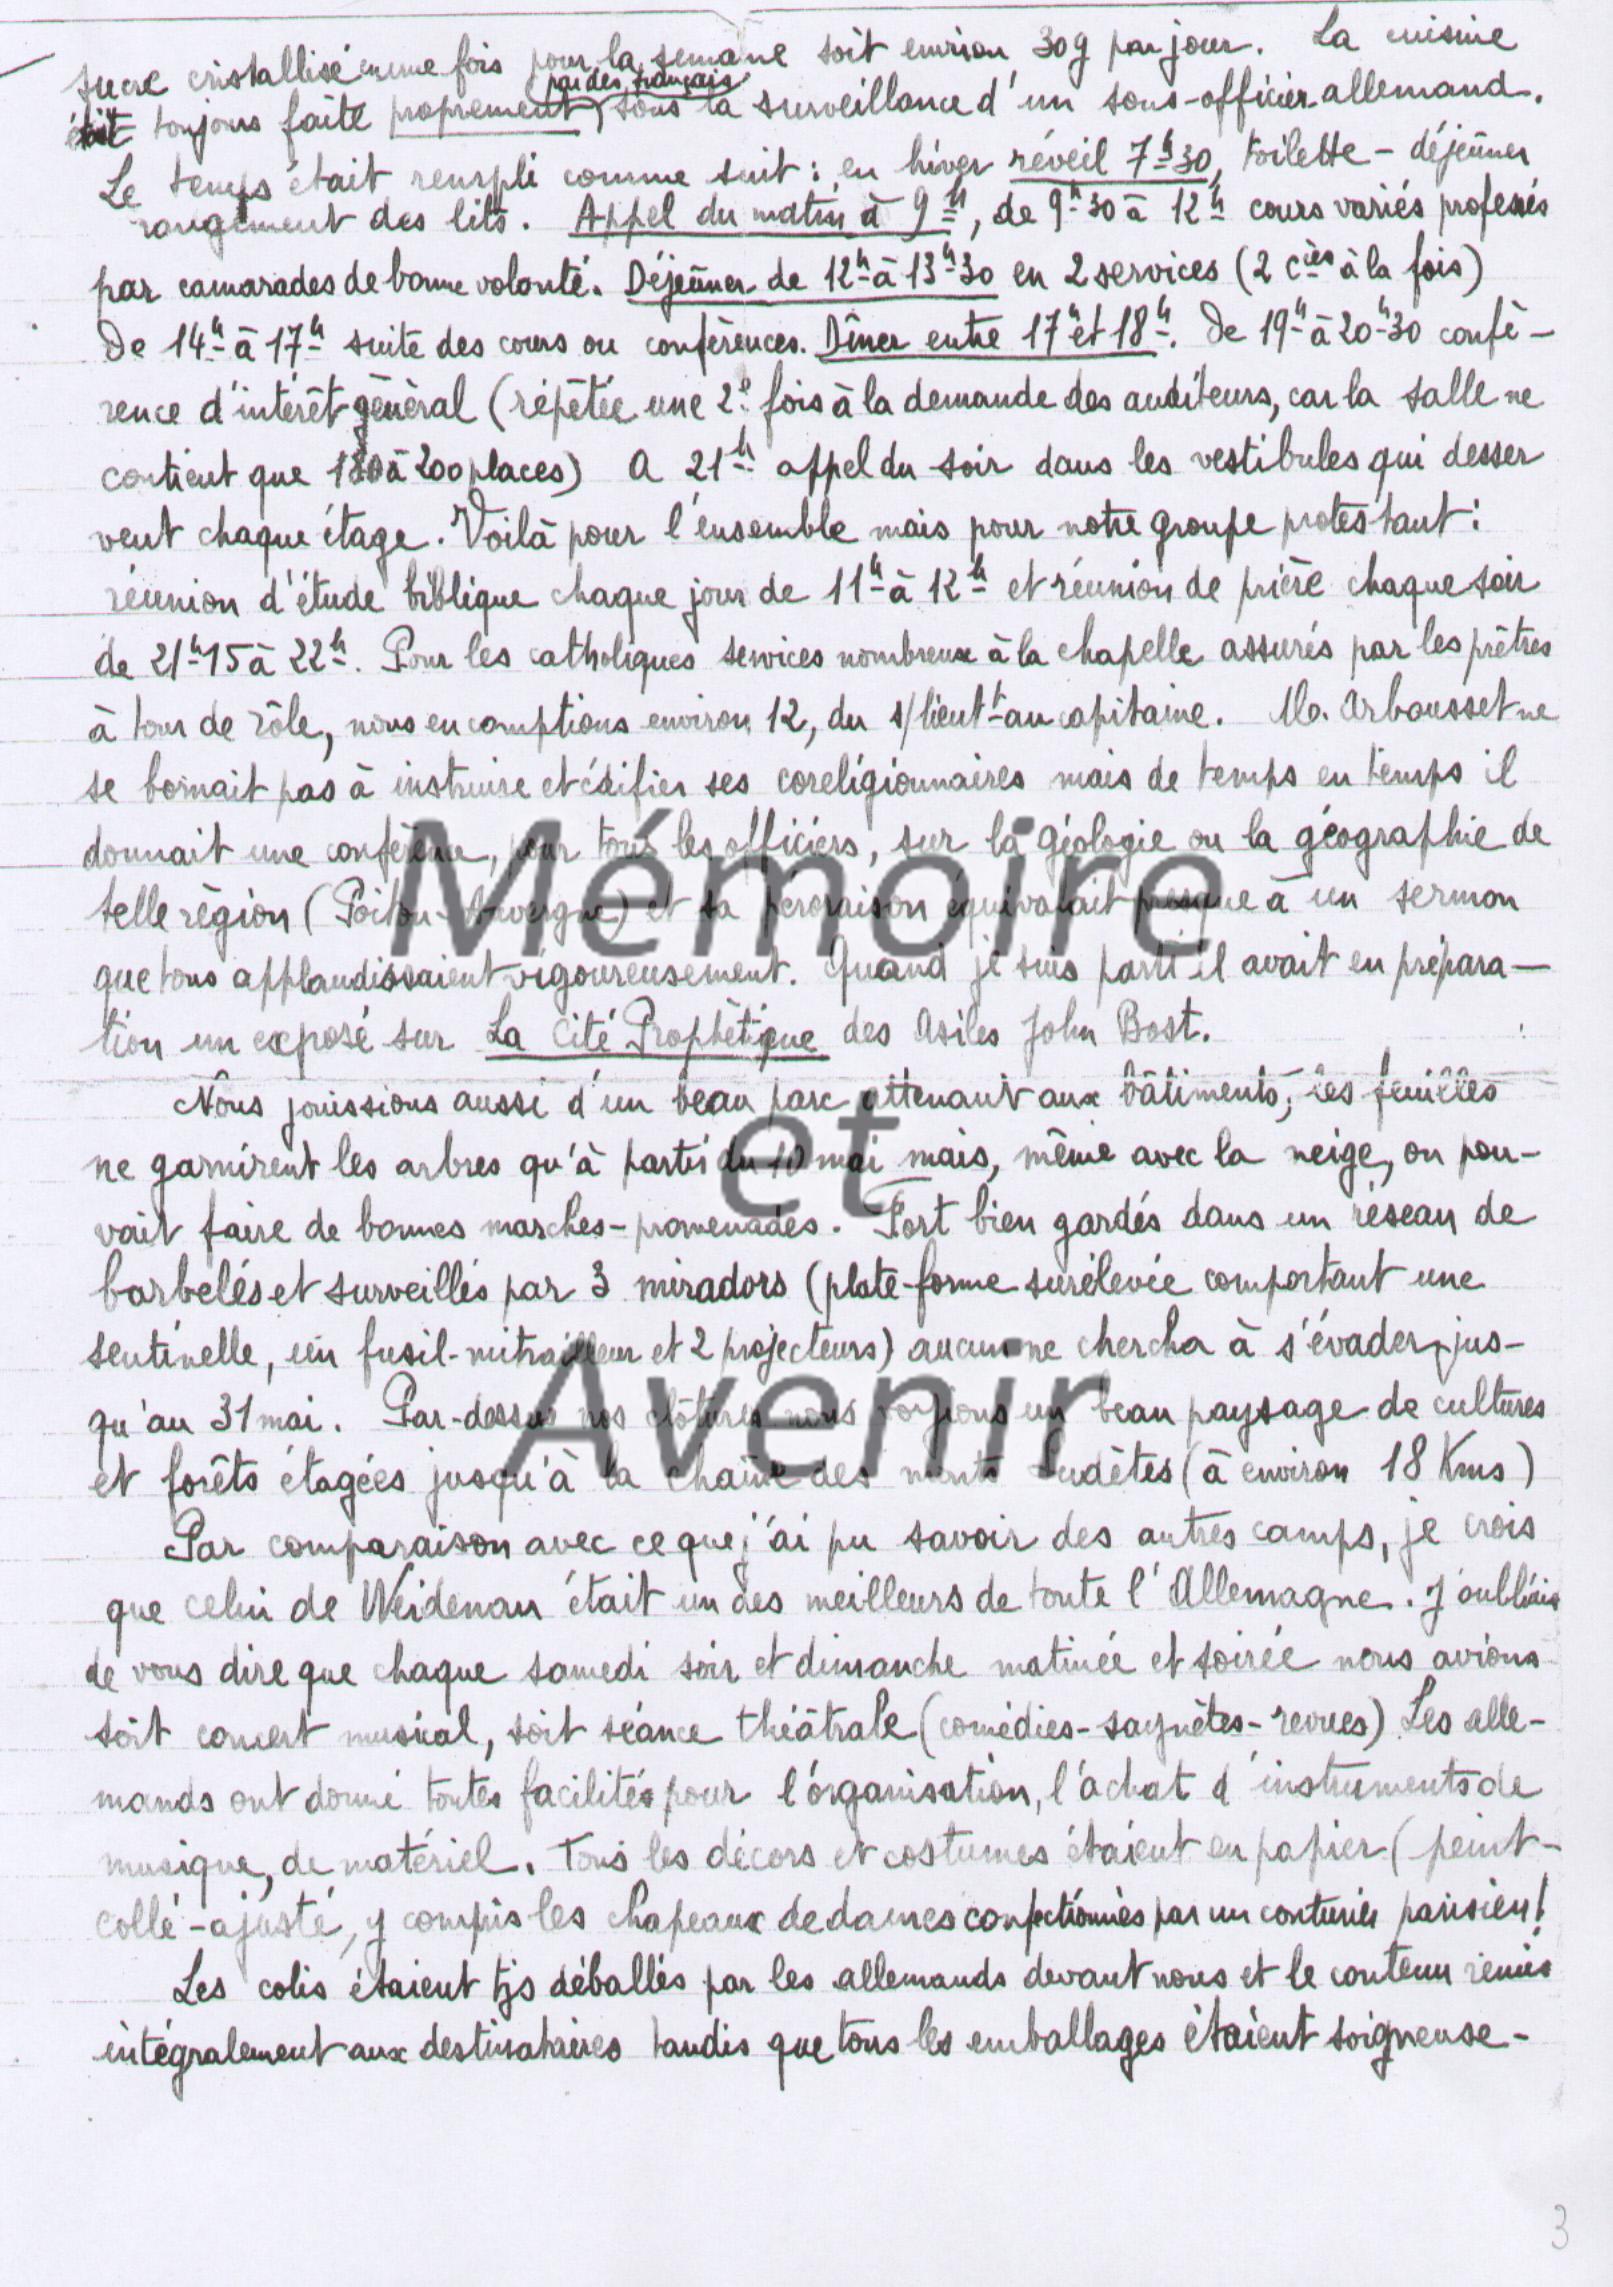 sucre cristallisé en une fois pour la semaine soit environ 30g par jour. La cuisine
par des français
était toujours faite proprement, sous la surveillance d'un sous-officier allemand.
Le temps était rempli comme suit : en hiver réveil 7h30, toilette - déjeûner
rangement des lits. Appel du matin à 9h, de 9h30 à 12h cours variés professés
par camarades de bonne volonté. Déjeûner de 12h à 13h30 en 2 services (2 Cies à la fois)
de 14h à 17h suite des cours ou conférences. Dîner entre 17h et 18h. de 19h à 20h30 confé-
rence d'intérêt général (répétée une 2e fois à la demande des auditeurs, car la salle ne
contient que 180 à 200 places) A 21h appel du soir dans les vestibules qui desser
vent chaque étage. Voilà pour l'ensemble mais pour notre groupe protestant :
réunion d'étude biblique chaque jour de 11h à 12h et réunion de prière chaque soir
de 21h15 à 22h. Pour les catholiques services nombreux à la chapelle assurés par les prêtres
à tour de rôle, nous en comptions environ 12, du s/lieutt au capitaine. M. Arbousset ne
se bornait pas à instruire et édifier ses coreligionnaires mais de temps en temps il
donnait une conférence, pour tous les officiers, sur la géologie ou la géographie de
telle région (Poitou - Auvergne) et sa péroraison équivalait presque à un sermon
que tous applaudissaient vigoureusement. Quand je suis parti il avait en prépara-
tion un exposé sur La Cité Prophétique des Asiles John Bost.
Nous jouissions aussi d'un beau parc attenant aux bâtiments, les feuilles
ne garnirent les arbres qu'à partir du 10 mai mais, même avec la neige, on pou-
vait faire de bonnes marches-promenades. Fort bien gardés dans un réseau de
barbelés et surveillés par 3 miradors (plate-forme surélevée comportant une
sentinelle, un fusil-mitrailleur et 2 projecteurs) aucun ne chercha à s'évader, jus-
qu'au 31 mai. Par-dessus nos clôtures nous voyions un beau paysage de cultures
et forêts étagées jusqu'à la chaîne des monts Sudètes (à environ 18 Kms)
Par comparaison avec ce que j'ai pu savoir des autres camps, je crois
que celui de Weidenau était un des meilleurs de toute l'Allemagne. J'oubliais
de vous dire que chaque samedi soir et dimanche matinée et soirée nous avions
soit concert musical, soit séance théâtrale (comédies - saynètes - revues) Les alle-
mands ont donné toutes facilités pour l'organisation, l'achat d'instruments de
musique, de matériel. Tous les décors et costumes étaient en papier (peint-
collé-ajusté, y compris les chapeaux de dames confectionnés par un couturier parisien!
Les colis étaient tjs déballés par les allemands devant nous et le contenu remis
intégralement aux destinataires tandis que tous les emballages étaient soigneuse-
3
Mémoire
et
Avenir